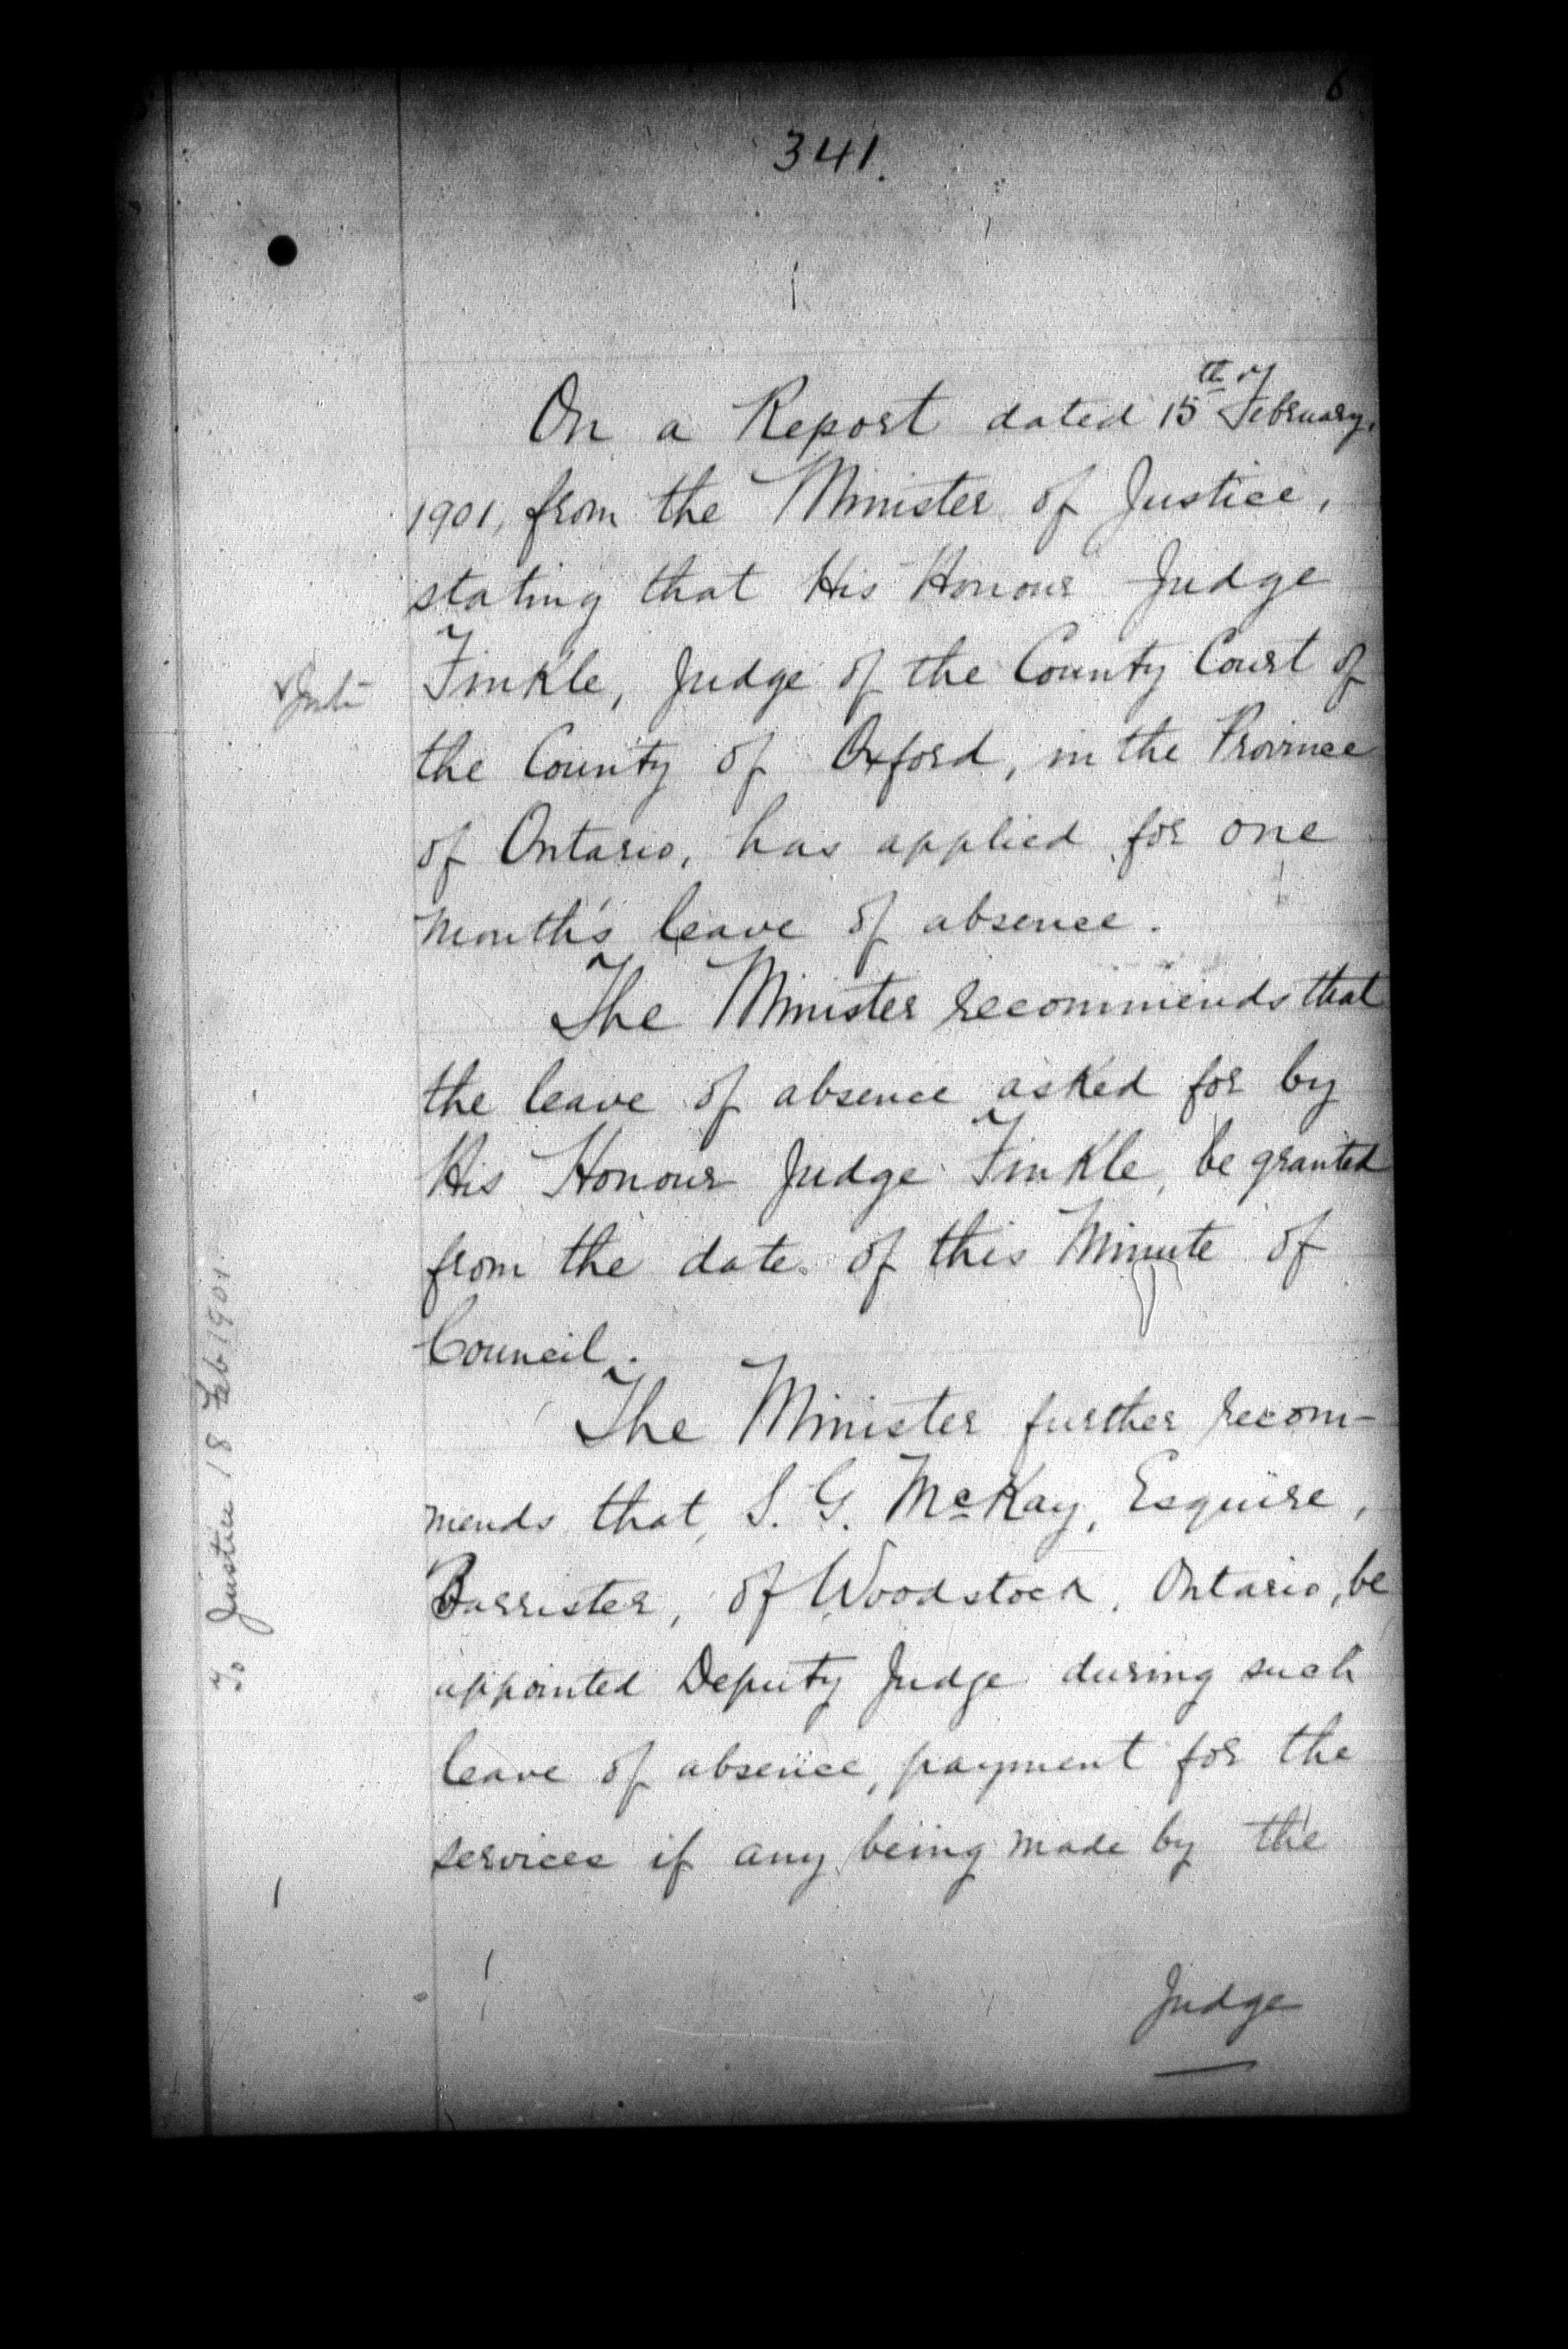 6
341.
On a Report dated 15th February,
1901, from the Minister of Justice,
stating that His Honour Judge
Finkle, Judge of the County Court of
the County of Oxford, in the Province
of Ontario, has applied for one
month's leave of absence.
The Minister recommends that
the leave of absence asked for by
His Honour Judge Finkle, be granted
from the date of this Minute of
Council.
The Minister further recom-
mends that, S. G. McKay, Esquire,
Barrister, of Woodstock, Ontario, be
appointed Deputy Judge during such
leave of absence, payment for the
services if any being made by the
Judge
To Justice 18 Feb 1901